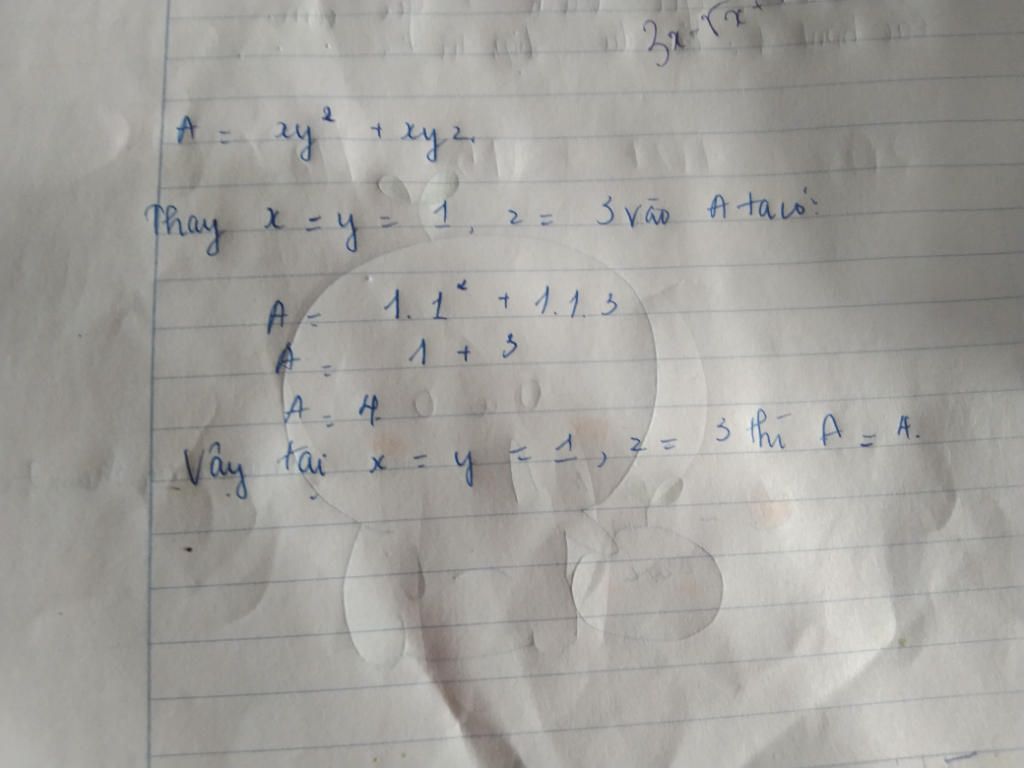 3x - √x +
A = xy² + xyz.
Thay x = y = 1, z = 3 vào A ta có:
A = 1.1² + 1.1.3
A = 1 + 3
A = 4.
Vậy tại x = y = 1, z = 3 thì A = 4.